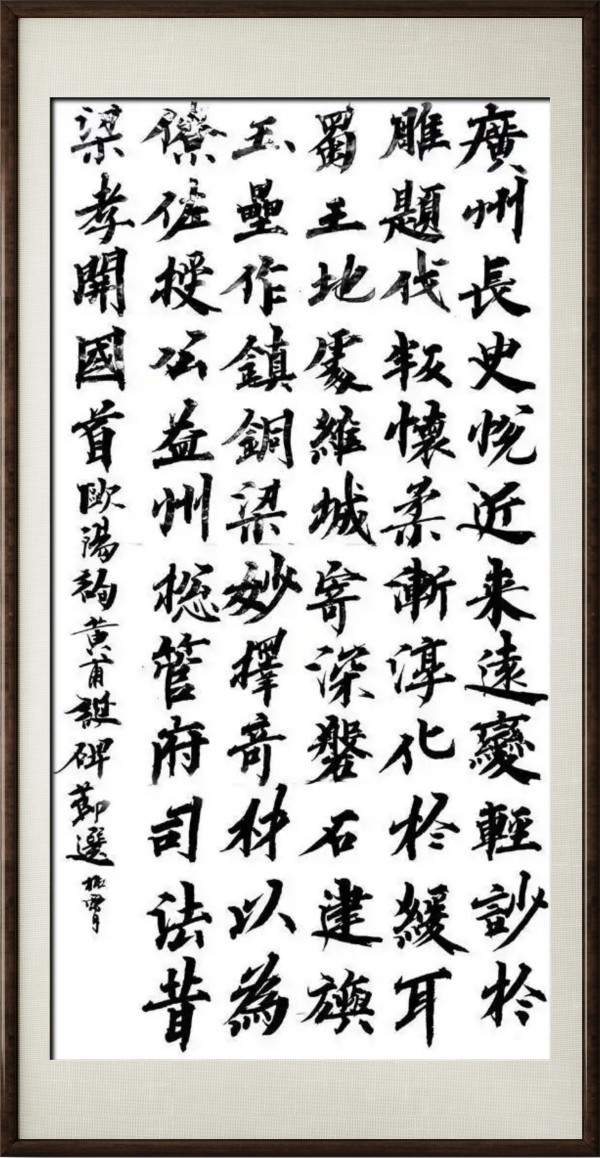 廣州長史悅近来遠變輕訬於
雕題伐叛懷柔漸淳化於緩耳
蜀王地處維城寄深磐石建旟
玉壘作鎮銅梁妙擇奇材以為
僚佐授公益州揔管府司法昔
梁孝開國首歐陽詢黄甫誕碑節選